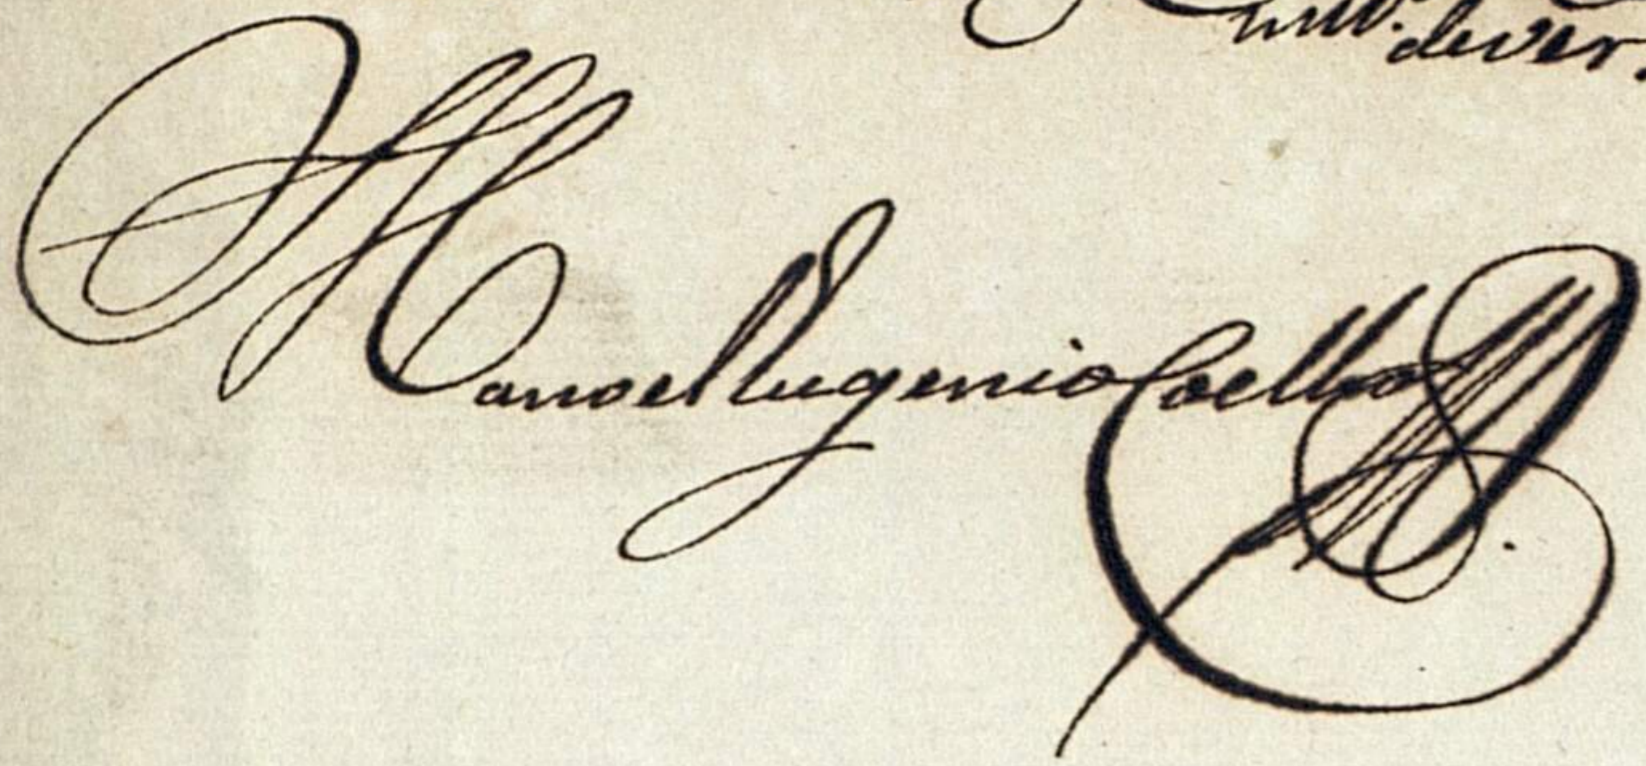 dever.
Manoel Eugenio Coelho